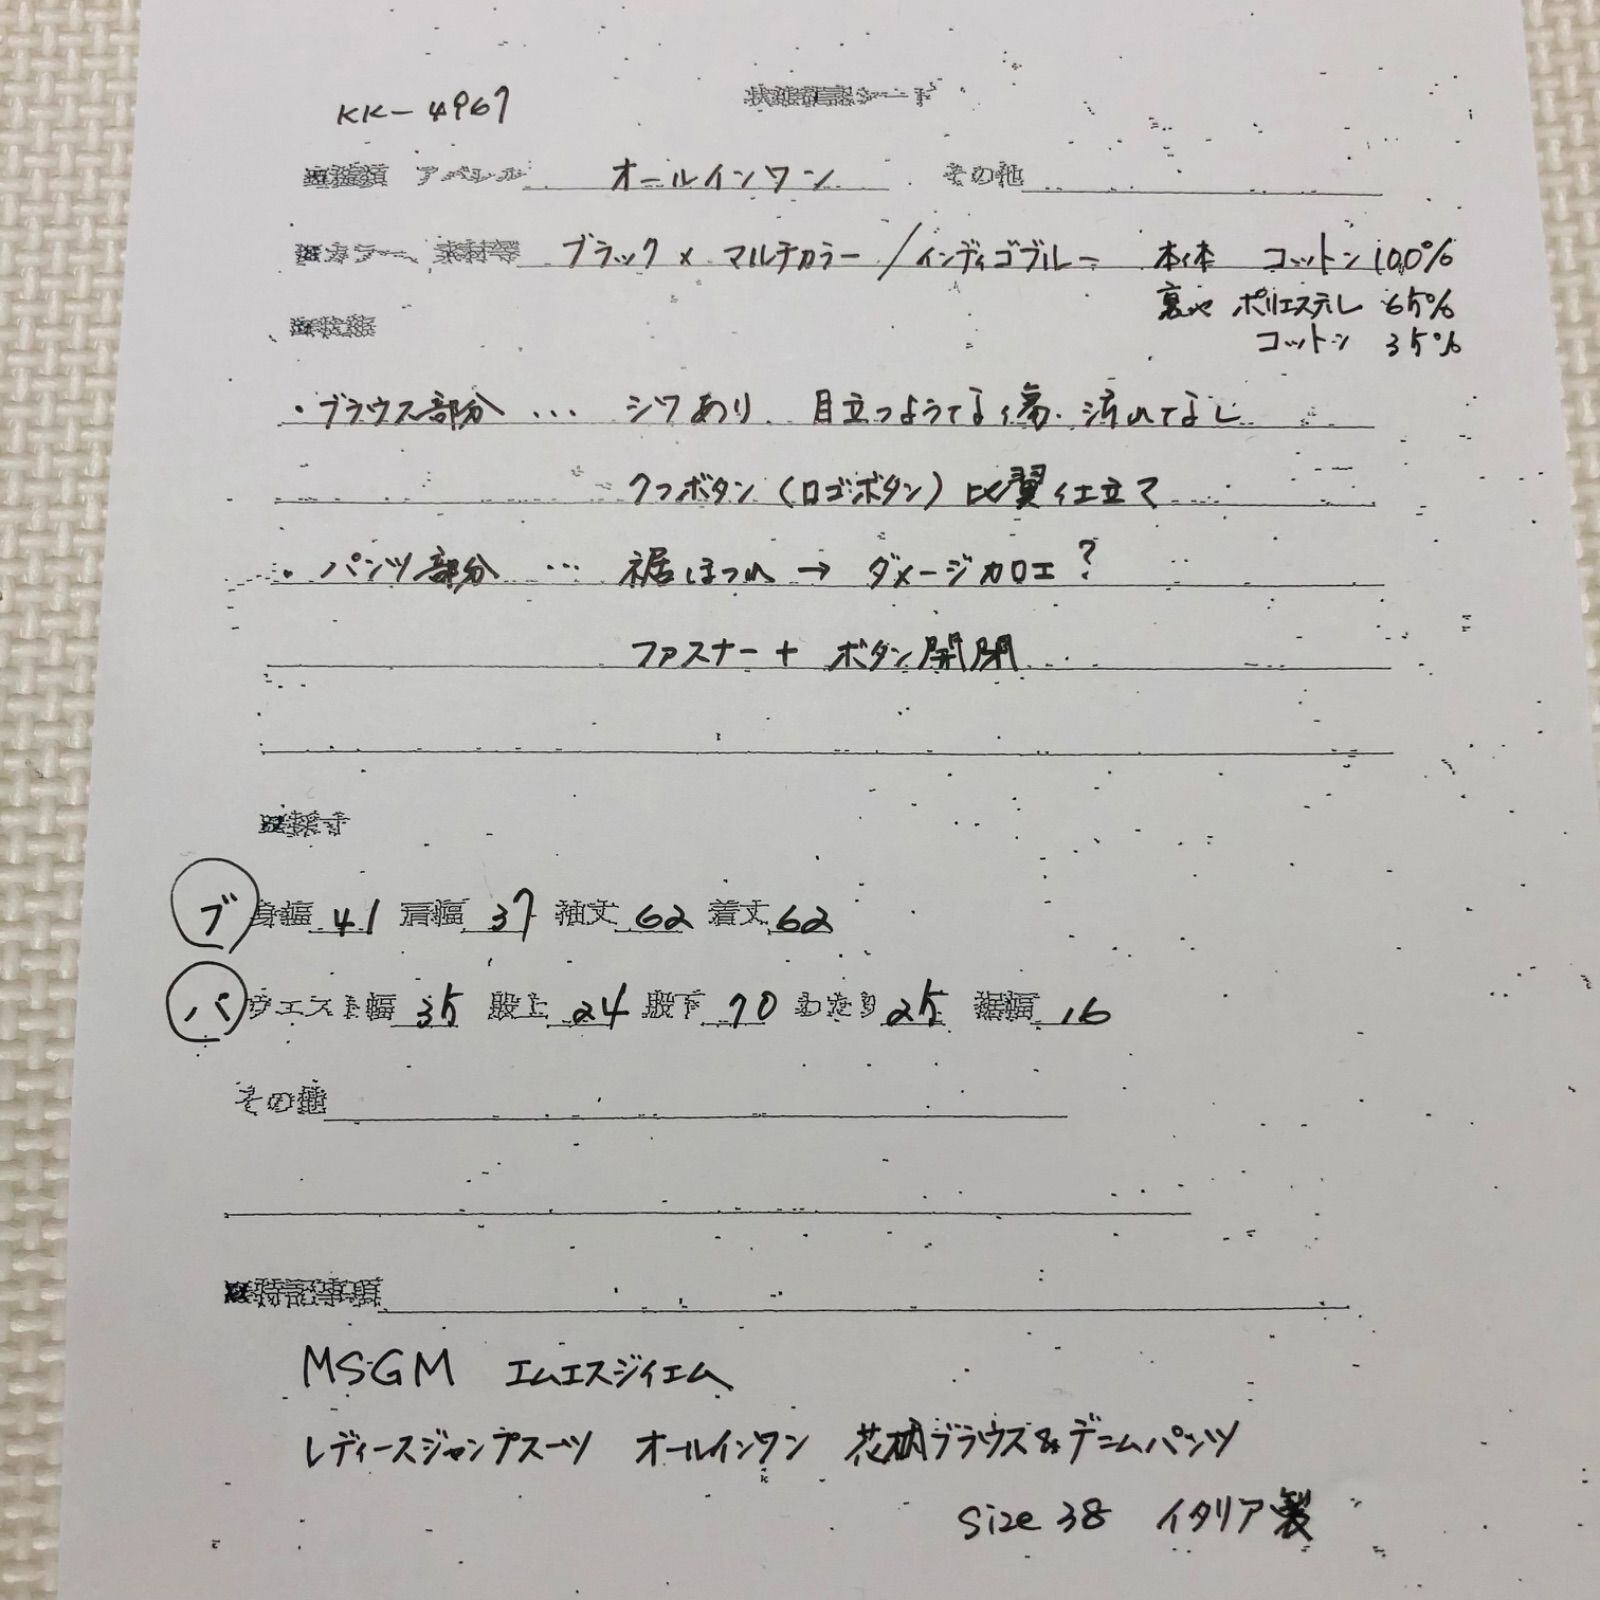 KK-4967
状態確認シート
■種類 アパレル オールインワン その他
■カラー、素材等 ブラック × マルチカラー / インディゴブルー 本体 コットン 100%
裏地 ポリエステル 65%
コットン 35%
■状態
・ブラウス部分 … シワあり 目立つような傷・汚れてなし
クフボタン(ロゴボタン) 比翼仕立て
・パンツ部分 … 裾ほつれ → ダメージカロエ?
ファスナー + ボタン開閉
■採寸
ブ 身幅 41 肩幅 37 袖丈 62 着丈 62
パ ウエスト幅 35 股上 24 股下 70 わたり 25 裾幅 16
その他
■特記事項
MSGM エムエスジイエム
レディースジャンプスーツ オールインワン 花柄ブラウス&デニムパンツ
size 38 イタリア製